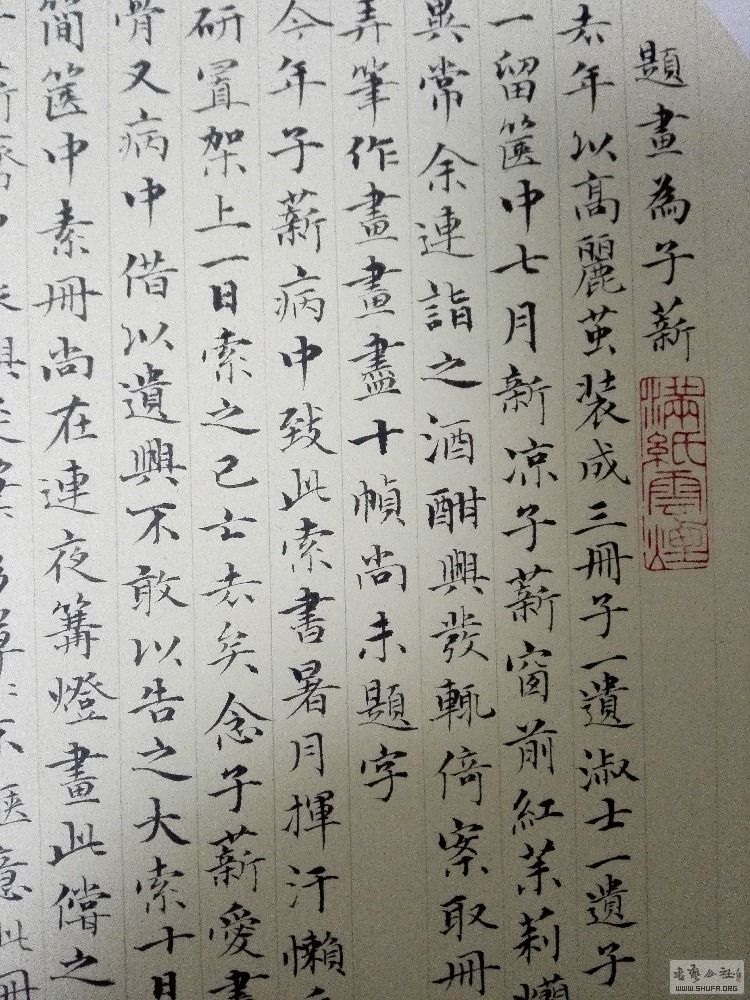 題畫為子薪
滿紙雲煙
去年以高麗茧装成三冊子一遺淑士一遺子
一留篋中七月新凉子薪窗前紅茉莉
異常余連詣之酒酣興發輒倚案取冊
弄筆作畫畫盡十幀尚未題字
今年子薪病中致此索書暑月揮汗懶
研置架上一日索之已亡去矣念子薪愛畫
骨又病中借以遺興不敢以告之大索十日
簡篋中素冊尚在連夜篝燈畫此償之
書藝公社
WWW.SHUFA.ORG